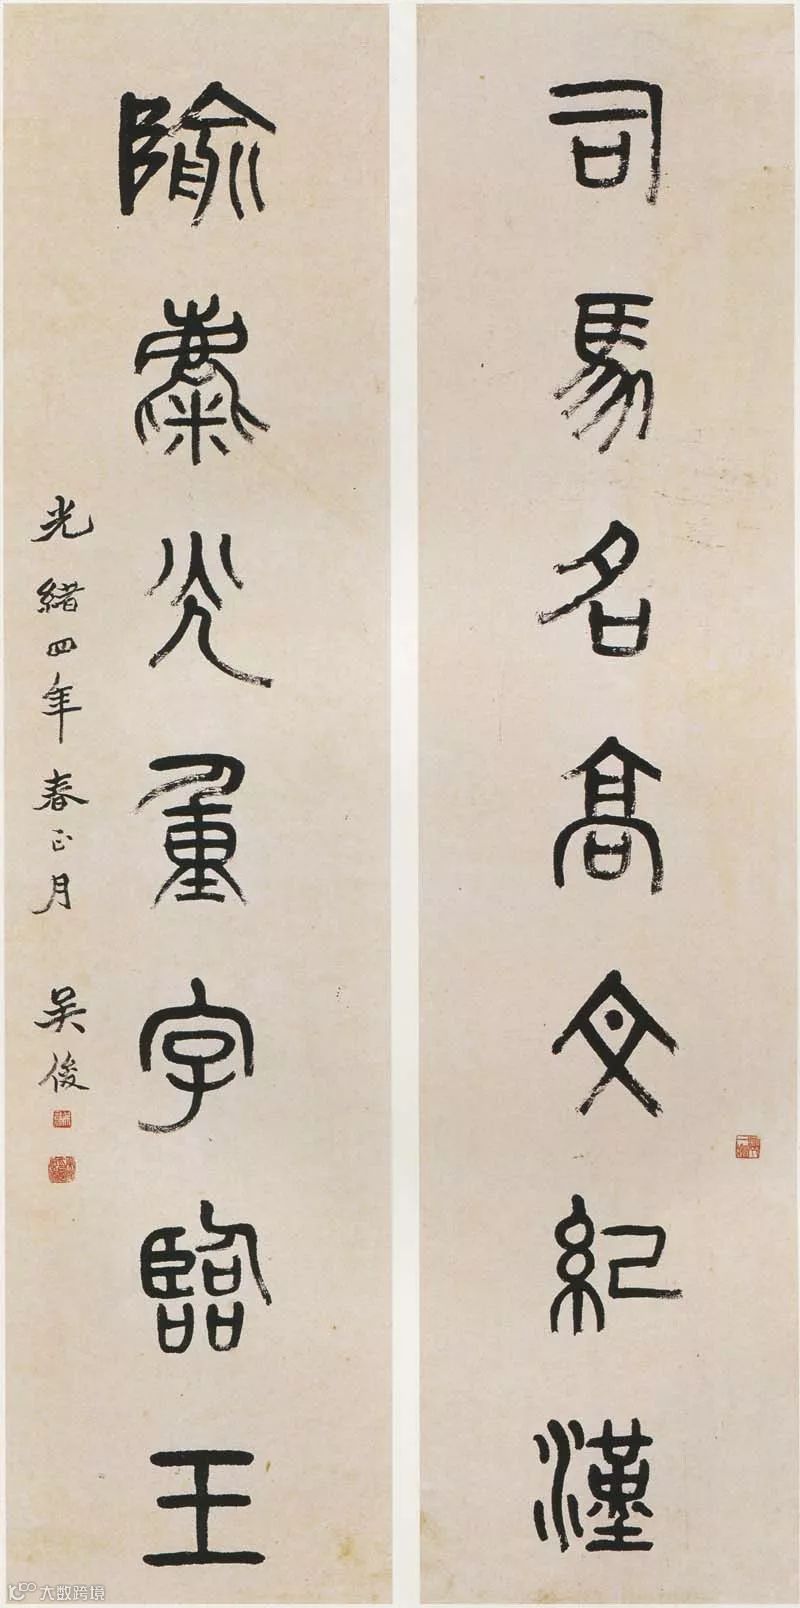 司馬名高文紀漢
隃麋光重字臨王
光緒四年春正月 吳俊
大数跨境